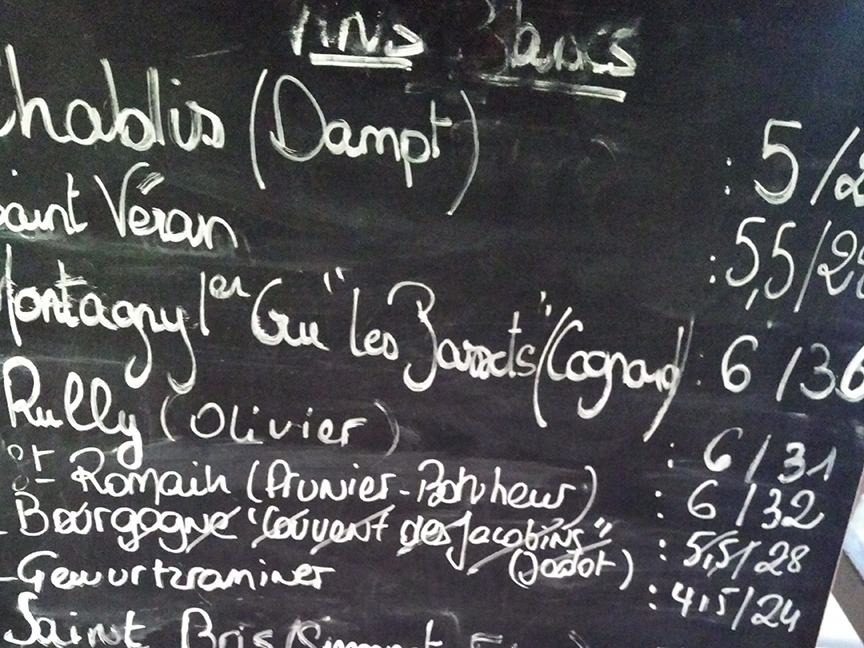 Vins Blancs
Chablis (Dampt) : 5/2
Saint Véran : 5,5/28
Montagny 1er Cru "les (Cognard) : 6/36
Rully (Olivier) : 6/31
St Romain (Prunier-Bonheur) : 6/32
- Bourgogne "Couvent des Jacobins" (Jadot) : 5,5/28
- Gewurtzraminer : 4,5/24
Saint Bris